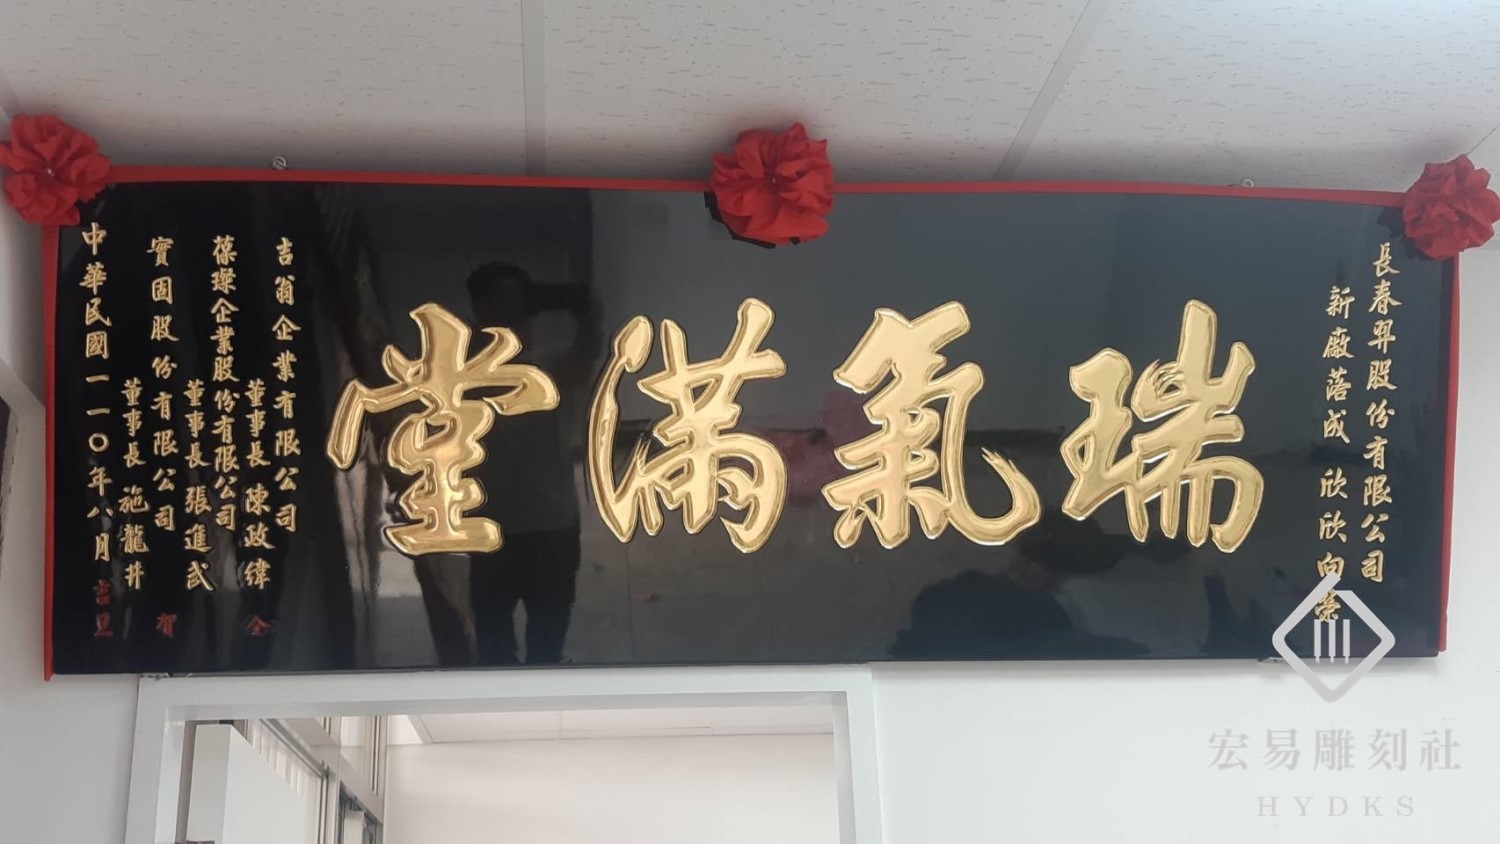 長春羿股份有限公司
新廠落成 欣欣向榮
瑞氣滿堂
吉翁企業有限公司
董事長 陳政緯 仝
葆璨企業股份有限公司
董事長 張進武
實固股份有限公司 賀
董事長 施龍井
中華民國一一〇年八月吉旦
宏易雕刻社
HYDKS